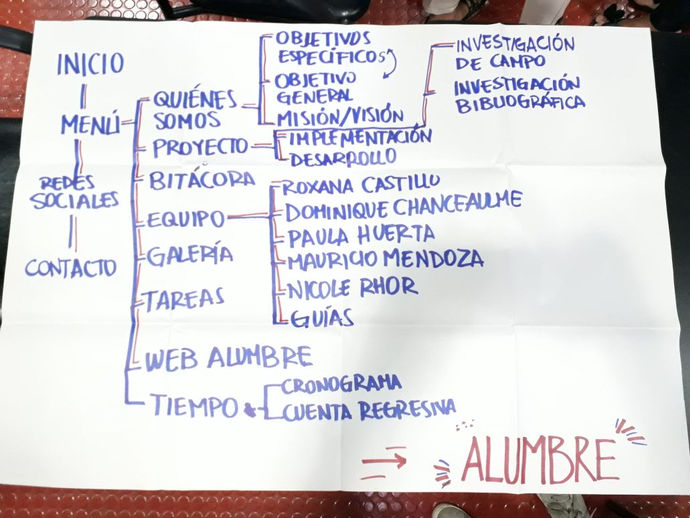 INICIO
MENÚ
REDES
SOCIALES
CONTACTO
QUIÉNES
SOMOS
OBJETIVOS
ESPECÍFICOS
OBJETIVO
GENERAL
MISIÓN/VISIÓN
PROYECTO
IMPLEMENTACIÓN
DESARROLLO
INVESTIGACIÓN
DE CAMPO
INVESTIGACIÓN
BIBLIOGRÁFICA
BITÁCORA
EQUIPO
ROXANA CASTILLO
DOMINIQUE CHANCEAULME
PAULA HUERTA
MAURICIO MENDOZA
NICOLE RHOR
GUÍAS
GALERÍA
TAREAS
WEB ALUMBRE
TIEMPO
CRONOGRAMA
CUENTA REGRESIVA
ALUMBRE